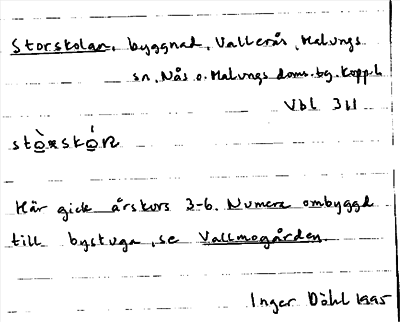 Storskolan, byggnad, Vallerås, Malungs
sn, Nås o. Malungs doms.bg. Kopp.l.
Vbl 311
Här gick årskurs 3-6. Numera ombyggd
till bystuga, se Vallmogården.
Inger Döhl 1995